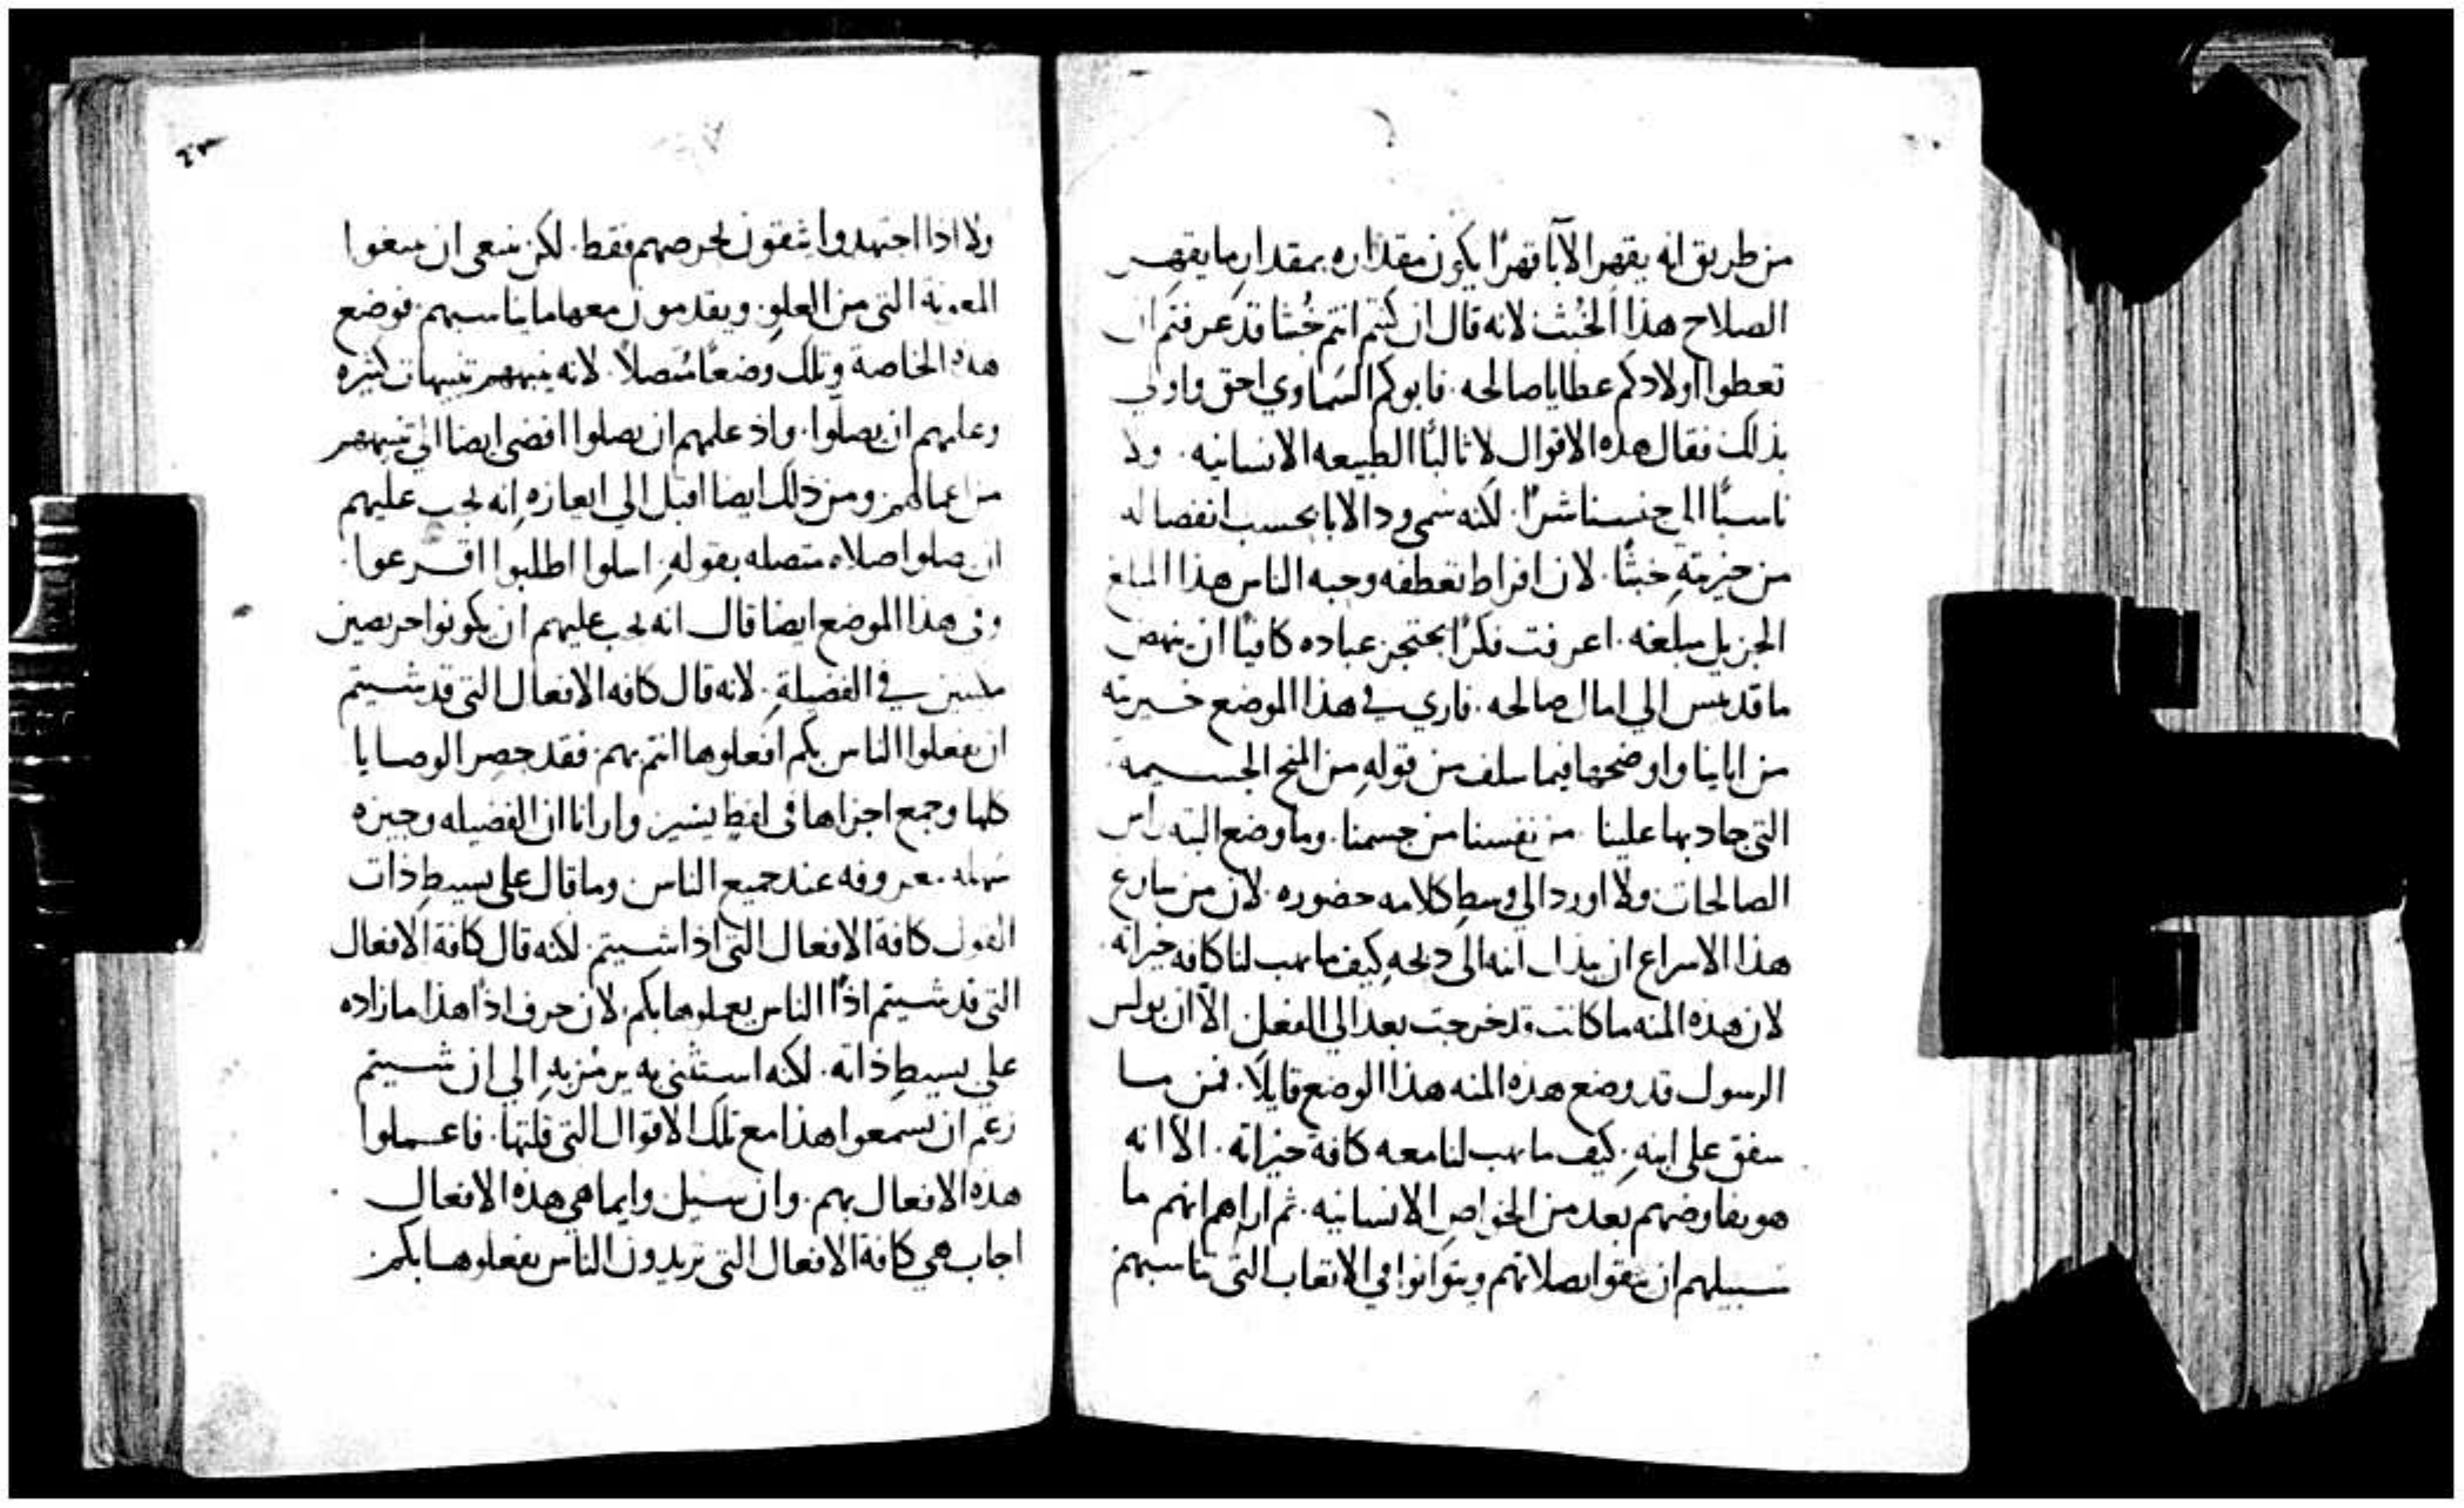 من طريق انه يقهر الآبا قهرًا يكون مقداره بمقدار ما يقهر
الصلاح هذا الخبث لانه قال ان كنتم انتم خبثا قد عرفتم ان
تعطوا اولادكم عطايا صالحه . فابوكم السماوي احق واولى
بذلك فقال هذه الاقوال لا ثالبًا الطبيعه الانسانيه . ولا
ناسبًا الى جنسنا شرًا . لكنه سمى ود الابا بحسب انفصاله
من خيريته خبثًا . لان افراط تعطفه وحبه الناس هذا المبلغ
الجزيل مبلغه . اعرفت فكرًا كافيًا ان ينهض
ما قد يىس الي امال صالحه . فاري في هذا الموضع خيريته
من اباينا واوضحها فيما سلف من قوله من المنح الجسيمه
التي جاد بها علينا من نفسنا من جسمنا . وما وضع البته راس
الصالحات ولا اورد الي وسط كلامه حضوره . لان من سارع
هذا الاسراع ان يبذل ابنه الى ذبحه كيف ما يهب لنا كافه خيراته .
لان هذه المنه ما كانت قد خرجت بعد الي الفعل الا ان بولس
الرسول قد وضع هذه المنه هذا الوضع قايلًا . فمن ما
شفق على ابنه . كيف ما يهب لنا معه كافة خيراته . الا انه
هو يفاوضهم بعد من الخواص الانسانيه . ثم اراهم انهم ما
سبيلهم ان يثقوا بصلاتهم ويتوانوا في الاتعاب التي تناسبهم
ولا اذا اجتهدوا يثقون بحرصهم فقط . لكن ينبغى ان يبتغوا
المعونة التي من العلو . ويقدمون معها ما يناسبهم . فوضع
هذه الخاصة وتلك وضعًا متصلًا . لانه نبههم تنبيهات كثيره
وعلمهم ان يصلوا . واذ علمهم ان يصلوا افضى ايضا الى تنبيههم
من اعمالهم ومن ذلك ايضا اقبل الي ايعازه انه يجب عليهم
ان يصلوا صلاه متصله بقوله . اسلوا اطلبوا اقرعوا .
وفي هذا الموضع ايضا قال انه يجب عليهم ان يكونوا حريصين
في الفضيلة . لانه قال كافه الافعال التي قد شيتم
ان يفعلوا الناس بكم افعلوها انتم بهم . فقد حصر الوصايا
كلها وجمع اجزاها في لفظ يسير وارانا ان الفضيله وجيزه
سهله معروفه عند جميع الناس وما قال على بسيط ذات
القول كافة الافعال التي اذا شيتم . لكنه قال كافة الافعال
التي قد شيتم اذًا الناس يعملوها بكم . لان حرف اذًا هذا ما زاده
على بسيط ذاته . لكنه استثنى به يرمز به الي ان شيتم
زعم ان تسمعوا هذا مع تلك الاقوال التي قلتها . فاعملوا
هذه الافعال بهم . وان سيل وايما هي هذه الافعال
اجاب هي كافة الافعال التي تريدون الناس يفعلوها بكم